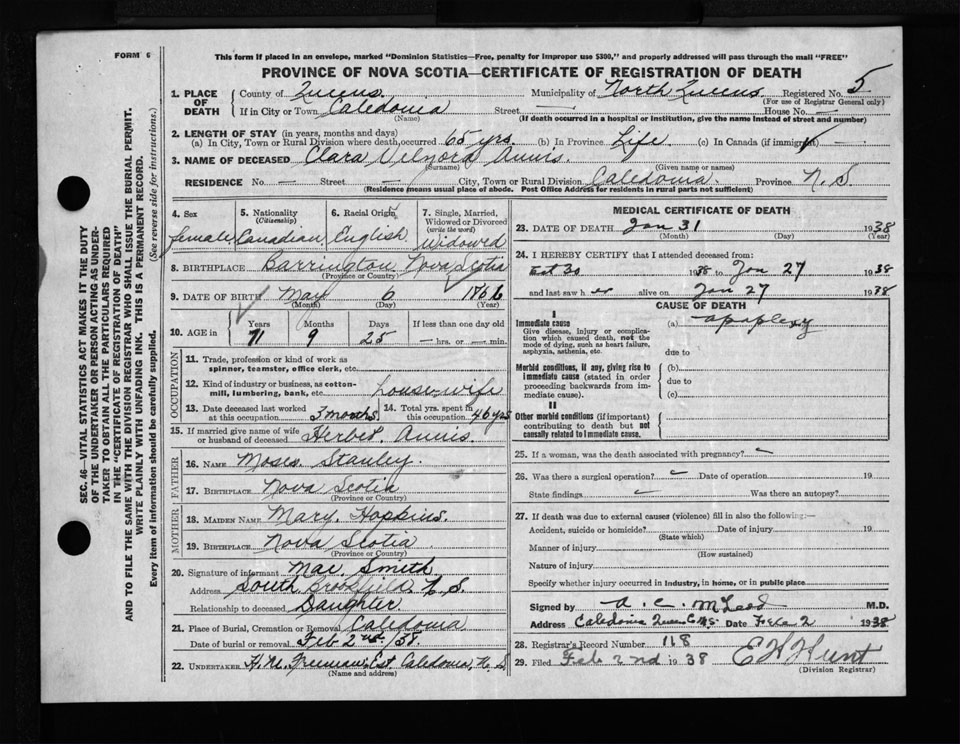 FORM 6
This form if placed in an envelope, marked "Dominion Statistics—Free, penalty for improper use $300," and properly addressed will pass through the mail "FREE"
PROVINCE OF NOVA SCOTIA—CERTIFICATE OF REGISTRATION OF DEATH
SEC. 46—VITAL STATISTICS ACT MAKES IT THE DUTY
OF THE UNDERTAKER OR PERSON ACTING AS UNDER-
TAKER TO OBTAIN ALL THE PARTICULARS REQUIRED
IN THE "CERTIFICATE OF REGISTRATION OF DEATH"
AND TO FILE THE SAME WITH THE DIVISION REGISTRAR WHO SHALL ISSUE THE BURIAL PERMIT.
WRITE PLAINLY WITH UNFADING INK. THIS IS A PERMANENT RECORD.
Every item of information should be carefully supplied. (See reverse side for instructions.)
1. PLACE OF DEATH County of Queens Municipality of North Queens Registered No. 5
(For use of Registrar General only)
If in City or Town Caledonia Street — House No. —
(Name) (If death occurred in a hospital or institution, give the name instead of street and number)
2. LENGTH OF STAY (in years, months and days)
(a) In City, Town or Rural Division where death occurred 65 yrs. (b) In Province Life (c) In Canada (if immigrant) —
3. NAME OF DECEASED Clara Annis.
(Surname) (Given name or names)
RESIDENCE No — Street — City, Town or Rural Division Caledonia. Province N. S.
(Residence means usual place of abode. Post Office Address for residents in rural parts not sufficient)
4. Sex 5. Nationality (Citizenship) 6. Racial Origin 7. Single, Married, Widowed or Divorced (write the word)
female Canadian English widowed
8. BIRTHPLACE Barrington Nova Scotia
(Province or Country)
9. DATE OF BIRTH May 6 1866
(Month) (Day) (Year)
10. AGE in Years Months Days If less than one day old
71 9 25 — hrs. or — min.
OCCUPATION
11. Trade, profession or kind of work as spinner, teamster, office clerk, etc.
12. Kind of industry or business, as cotton-mill, lumbering, bank, etc. housewife
13. Date deceased last worked at this occupation 3 months 14. Total yrs. spent in this occupation 46 yrs
15. If married give name of wife or husband of deceased Herbert Annis.
FATHER
16. NAME Moses Stanley
17. BIRTHPLACE Nova Scotia
(Province or Country)
MOTHER
18. MAIDEN NAME Mary Hopkins.
19. BIRTHPLACE Nova Scotia
(Province or Country)
20. Signature of informant Mae Smith
Address South Brookfield N. S.
Relationship to deceased Daughter
21. Place of Burial, Cremation or Removal Caledonia
Date of burial or removal Feb 2nd /38.
22. UNDERTAKER Freeman Est Caledonia, N. S
(Name and address)
MEDICAL CERTIFICATE OF DEATH
23. DATE OF DEATH Jan 31 1938
(Month) (Day) (Year)
24. I HEREBY CERTIFY that I attended deceased from:
30 1938 to Jan 27 1938
and last saw h er alive on Jan 27 1938
CAUSE OF DEATH
I
Immediate cause (a) apoplexy
Give disease, injury or complication which caused death, not the mode of dying, such as heart failure, asphyxia, asthenia, etc. due to
Morbid conditions, if any, giving rise to immediate cause (stated in order proceeding backwards from immediate cause). (b)
due to
(c)
II
Other morbid conditions (if important) contributing to death but not causally related to immediate cause.
25. If a woman, was the death associated with pregnancy?
26. Was there a surgical operation? Date of operation 19
State findings Was there an autopsy?
27. If death was due to external causes (violence) fill in also the following:—
Accident, suicide or homicide? Date of injury 19
(State which)
Manner of injury
(How sustained)
Nature of injury
Specify whether injury occurred in industry, in home, or in public place
Signed by A. C. McLeod M.D.
Address Caledonia Queens Co N.S. Date Feb 2 1938
28. Registrar's Record Number 118
29. Filed Feb 2nd 1938 E H Hunt
(Division Registrar)